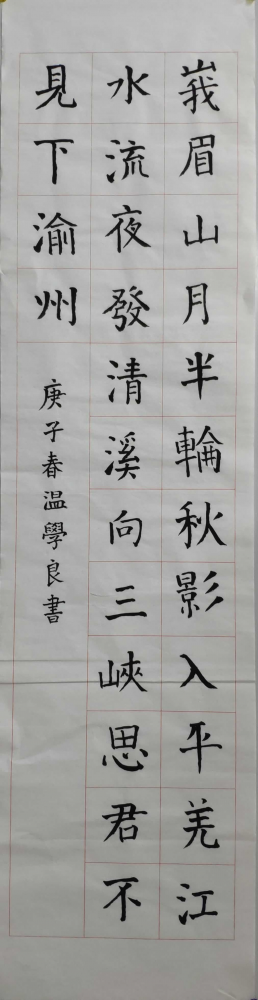 峩眉山月半輪秋影入平羌江
水流夜發清溪向三峽思君不
見下渝州
庚子春温學良書